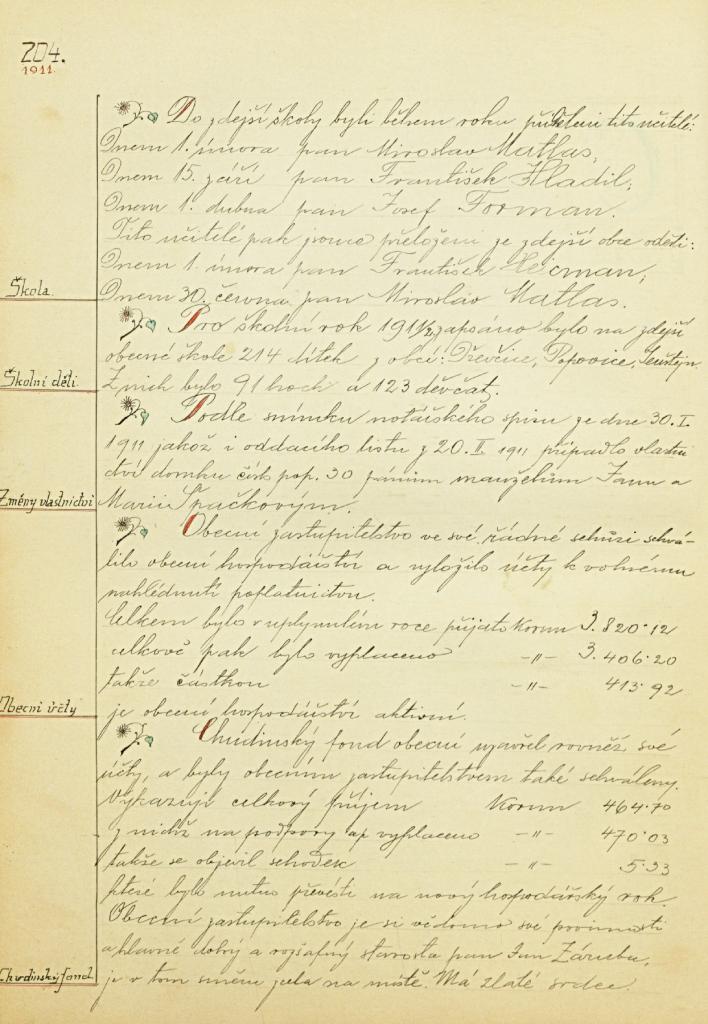 204.
1911.
Do zdejší školy byli během roku přiděleni tito učitelé:
Dnem 1. února pan Miroslav Matlas,
Dnem 15. září pan František Hladil,
Dnem 1. dubna pan Josef Forman.
Tito učitelé pak jsouce přeloženi ze zdejší obce odešli:
Dnem 1. února pan František Heicman,
Škola.
Dnem 30. června pan Miroslav Matlas.
Pro školní rok 1911/2 zapsáno bylo na zdejší
obecné škole 214 dítek z obcí: Dřevčice, Popovice, Jenštejn.
Školní děti.
Z nich bylo 91 hoch a 123 děvčat.
Podle snímku notářského spisu ze dne 30. I.
1911 jakož i oddacího listu z 20. II. 1911 připadlo vlastni
ctví domku čís. pop. 30 pánům manželům Janu a
Změny vlastnictví
Marii Špačkovým.
Obecní zastupitelstvo ve své řádné schůzi schvá-
lilo obecní hospodářství a vyložilo účty k volnému
nahlédnutí poplatnictvu.
Celkem bylo v uplynulém roce přijato Korun 3.820·12
celkově pak bylo vyplaceno -"- 3.406·20
takže částkou -"- 413·92
Obecní účty
je obecní hospodářství aktivní.
Chudinský fond obecní uzavřel rovněž své
účty, a byly obecním zastupitelstvem také schváleny.
Vykazuje celkový příjem Korun 464·70
z nichž na podpory vyplaceno -"- 470·03
takže se objevil schodek -"- 5·33
které bylo nutno převésti na nový hospodářský rok.
Obecní zastupitelstvo je si vědomo své povinnosti
a hlavně dobrý a rozšafný starosta pan Jan Záruba,
Chudinský fond
je v tom směru zcela na místě. Má zlaté srdce.